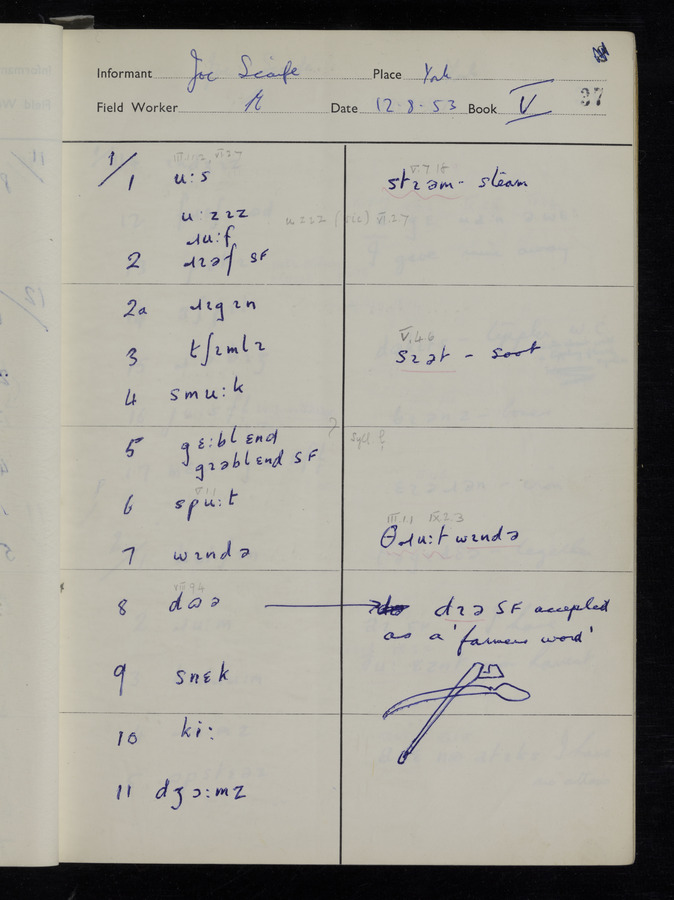 Informant Joe Scaife Place York
Field Worker Date 12.8.53 Book V 97
1/
III.11.2, VI.2.7 V.7.18
1 u:s strəm - steam
u:zɪz uzɪz (sic) VI.2.7
ɹu:f
2 ɹɪəf SF
2a ɹɪgɪn
3 tʃɪmlɪ
V.4.6
sɪət - soot
4 smu:k
5 gɛ:blɛnd syll. l̩ ?
gɪəblɛnd SF
V.1.1
6 spu:t
III.1.1 IX.2.3
θɹu:t wɪndə
7 wɪndə
VIII.9.4
8 dɔə dɪə SF accepted
as a 'farmers word'
9 snɛk
10 ki:
11 dʒɔ:mz